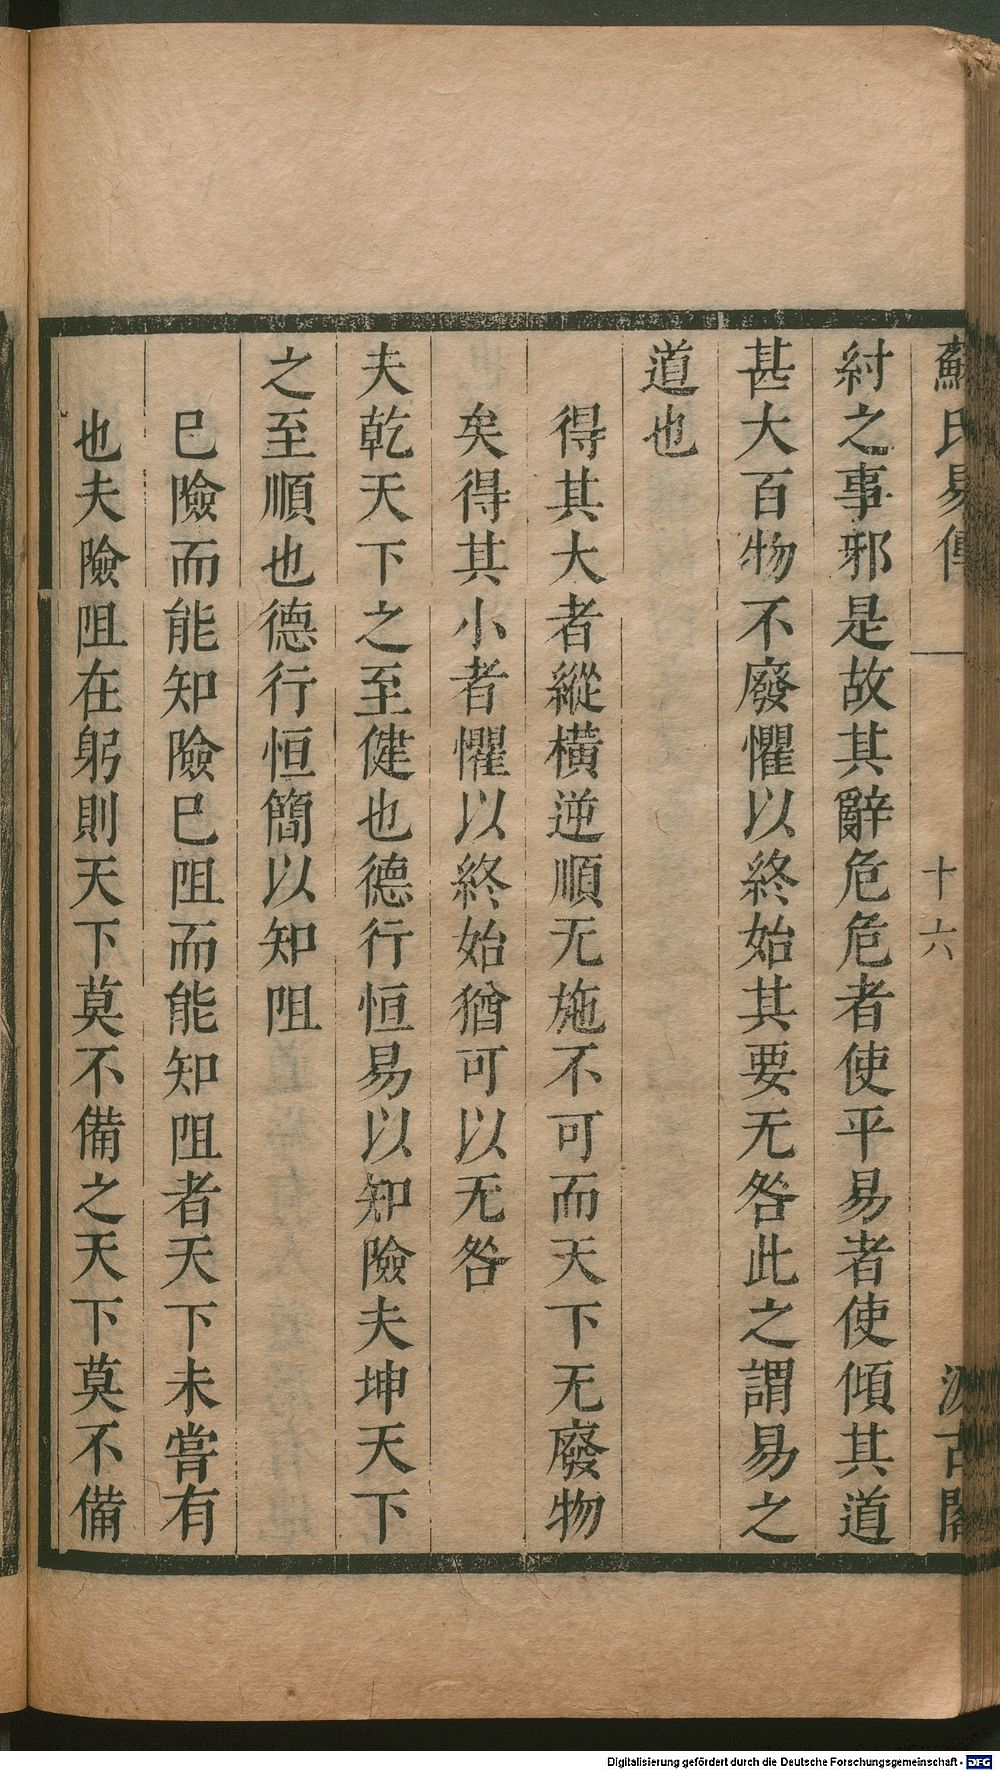 蘇氏易傳 十六 汲古閣
紂之事邪是故其辭危危者使平易者使傾其道
甚大百物不廢懼以終始其要无咎此之謂易之
道也
得其大者縱橫逆順无施不可而天下无廢物
矣得其小者懼以終始猶可以无咎
夫乾天下之至健也德行恒易以知險夫坤天下
之至順也德行恒簡以知阻
巳險而能知險巳阻而能知阻者天下未嘗有
也夫險阻在躬則天下莫不備之天下莫不備
Digitalisierung gefördert durch die Deutsche Forschungsgemeinschaft - DFG